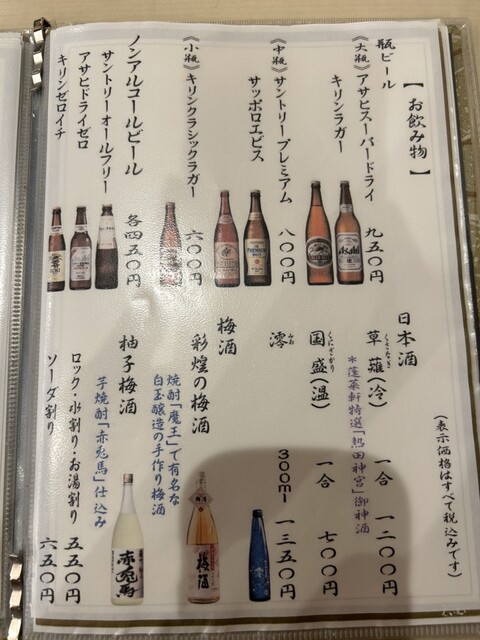 【お飲み物】
瓶ビール
《大瓶》アサヒスーパードライ
キリンラガー
九五〇円
《中瓶》サントリープレミアム
サッポロエビス
八〇〇円
《小瓶》キリンクラシックラガー
六〇〇円
ノンアルコールビール
サントリーオールフリー
アサヒドライゼロ
キリンゼロイチ
各四五〇円
(表示価格はすべて税込みです)
日本酒
草薙(冷) 一合 一二〇〇円
くさなぎ
*蓬莱軒特選「熱田神宮」御神酒
国盛(温) 一合 七〇〇円
くにざかり
澪 300ml 一三五〇円
みお
梅酒
彩煌の梅酒
焼酎「魔王」で有名な
白玉醸造の手作り梅酒
柚子梅酒
芋焼酎「赤兎馬」仕込み
ロック・水割り・お湯割り 五五〇円
ソーダ割り 六五〇円
Asahi
梅酒
赤兎馬